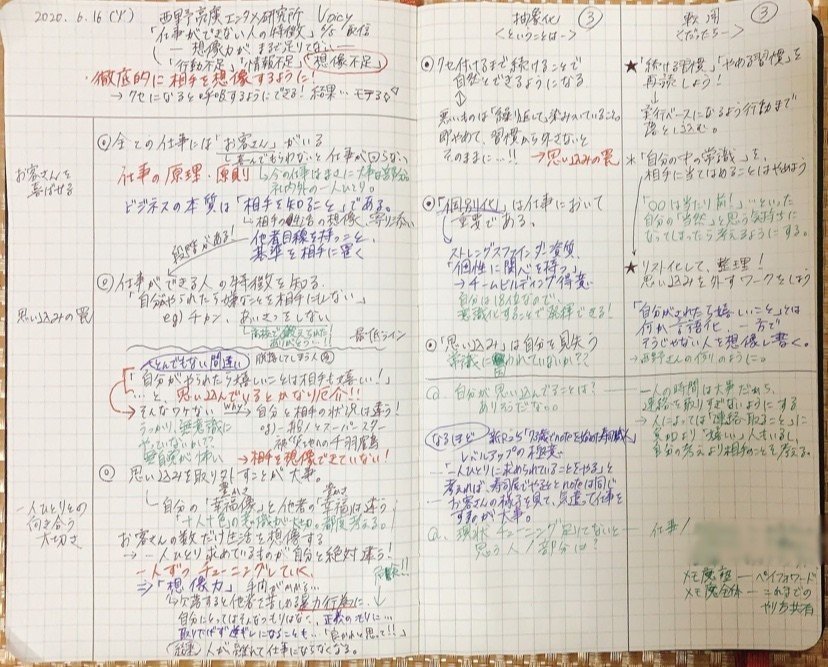 2020.6.16(火)
西野亮廣エンタメ研究所 Voicy
「仕事ができない人の特徴」6/5 配信
― 想像力が、まるで足りてない ―
「行動不足」「情報不足」「想像不足」
・徹底的に相手を想像するように!
→ クセになると呼吸するようにできる! 結果… モテる
お客さんを
喜ばせる
◎ 全ての仕事には「お客さん」がいる
喜んでもらわないと仕事が回らない
仕事の原理、原則
社内外の一人ひとり。
ビジネスの本質は「相手を知ること」である。
相手の生活の想像、寄り添い
段階がある!
他者目線を持つこと、
基準を相手に置く
思い込みの罠
◎ 仕事ができる人の特徴を知る
「自分がやられたら嫌なことを相手にしない」
eg) チカン、あいさつをしない
最低ライン
とんでもない間違い
脱落してしまう人
「自分がやられたら嬉しいことは相手も嬉しい!」
…と、思い込んでいるとかなり厄介!!
→ そんなワケない WHY→ 自分と相手の状況は違う!
うっかり、無意識に
やっていないか?
無自覚が怖い
eg) 一般人とスーパースター
被災地への千羽鶴
→ 相手を想像できていない!
一人ひとりとの
向き合う
大切さ
◎ 思い込みを取り外すことが大事。
自分の「幸福像」と他者の「幸福」は違う
「十人十色の意識が大切。都度考える。」
お客さんの数だけ生活を想像する
→ 一人ひとり求めているものが自分と絶対違う!
一人ずつチューニングしていく、
⇒「想像力」
欠落すると他者を苦しめる暴力行為に
自分にとってはそんなつもりはない、正義のつもりに…
「良かれと思って!!」
結果、人が離れて仕事にならなくなる。
抽象化 ③
<ということは→>
◎ クセ付けるまで続けることで
自然とできるようになる
悪いものは「繰り返して染みついていること。
即やめて、習慣から外さないと
そのままに…!! → 思い込みの罠
◎「個別化」は仕事において
重要である。
ストレングスファインダー資質、
「個性に関心を持つ」
→ チームビルディング得意
自分は18位なので、
意識化することで発揮できる!
◎「思い込み」は自分を見失う
常識に囚われていないか??
Q. 自分が思い込んでることは?
ありそうだな。。
なるほど
レベルアップの極意
「一人ひとりに求められていることをやる」と
考えれば、寿司屋でやることとnoteは同じ
お客さんの様子を見て、気遣って仕事を
するのが大事。
Q. 現状チューニング足りてないと
思う人/部分は?
転用 ③
<だったら→>
★「続ける習慣」「やめる習慣」を
再読しよう!
実行ベースになるよう行動まで
落とし込む。
*「自分の中の常識」を、
相手に当てはめることはやめよう
「〇〇は当たり前!」といった
自分の「当然」と思う気持ちに
なってしまったら考えるようにする。
★ リスト化して、整理!
思い込みを外すワークをしよう
「自分がされたら嬉しいこと」とは
何か言語化、一方で
そうじゃない人を想像し書く。
→ 西野さんの例のように。
一人の時間は大事だから、
連絡を取りすぎないようにする
→ 人によっては「連絡を取ること」に
自分の考えより相手のことを考える。
仕事!
メモ魔塾 ― ペイフォワード
メモ魔全体 ― これまでの
やり方共有